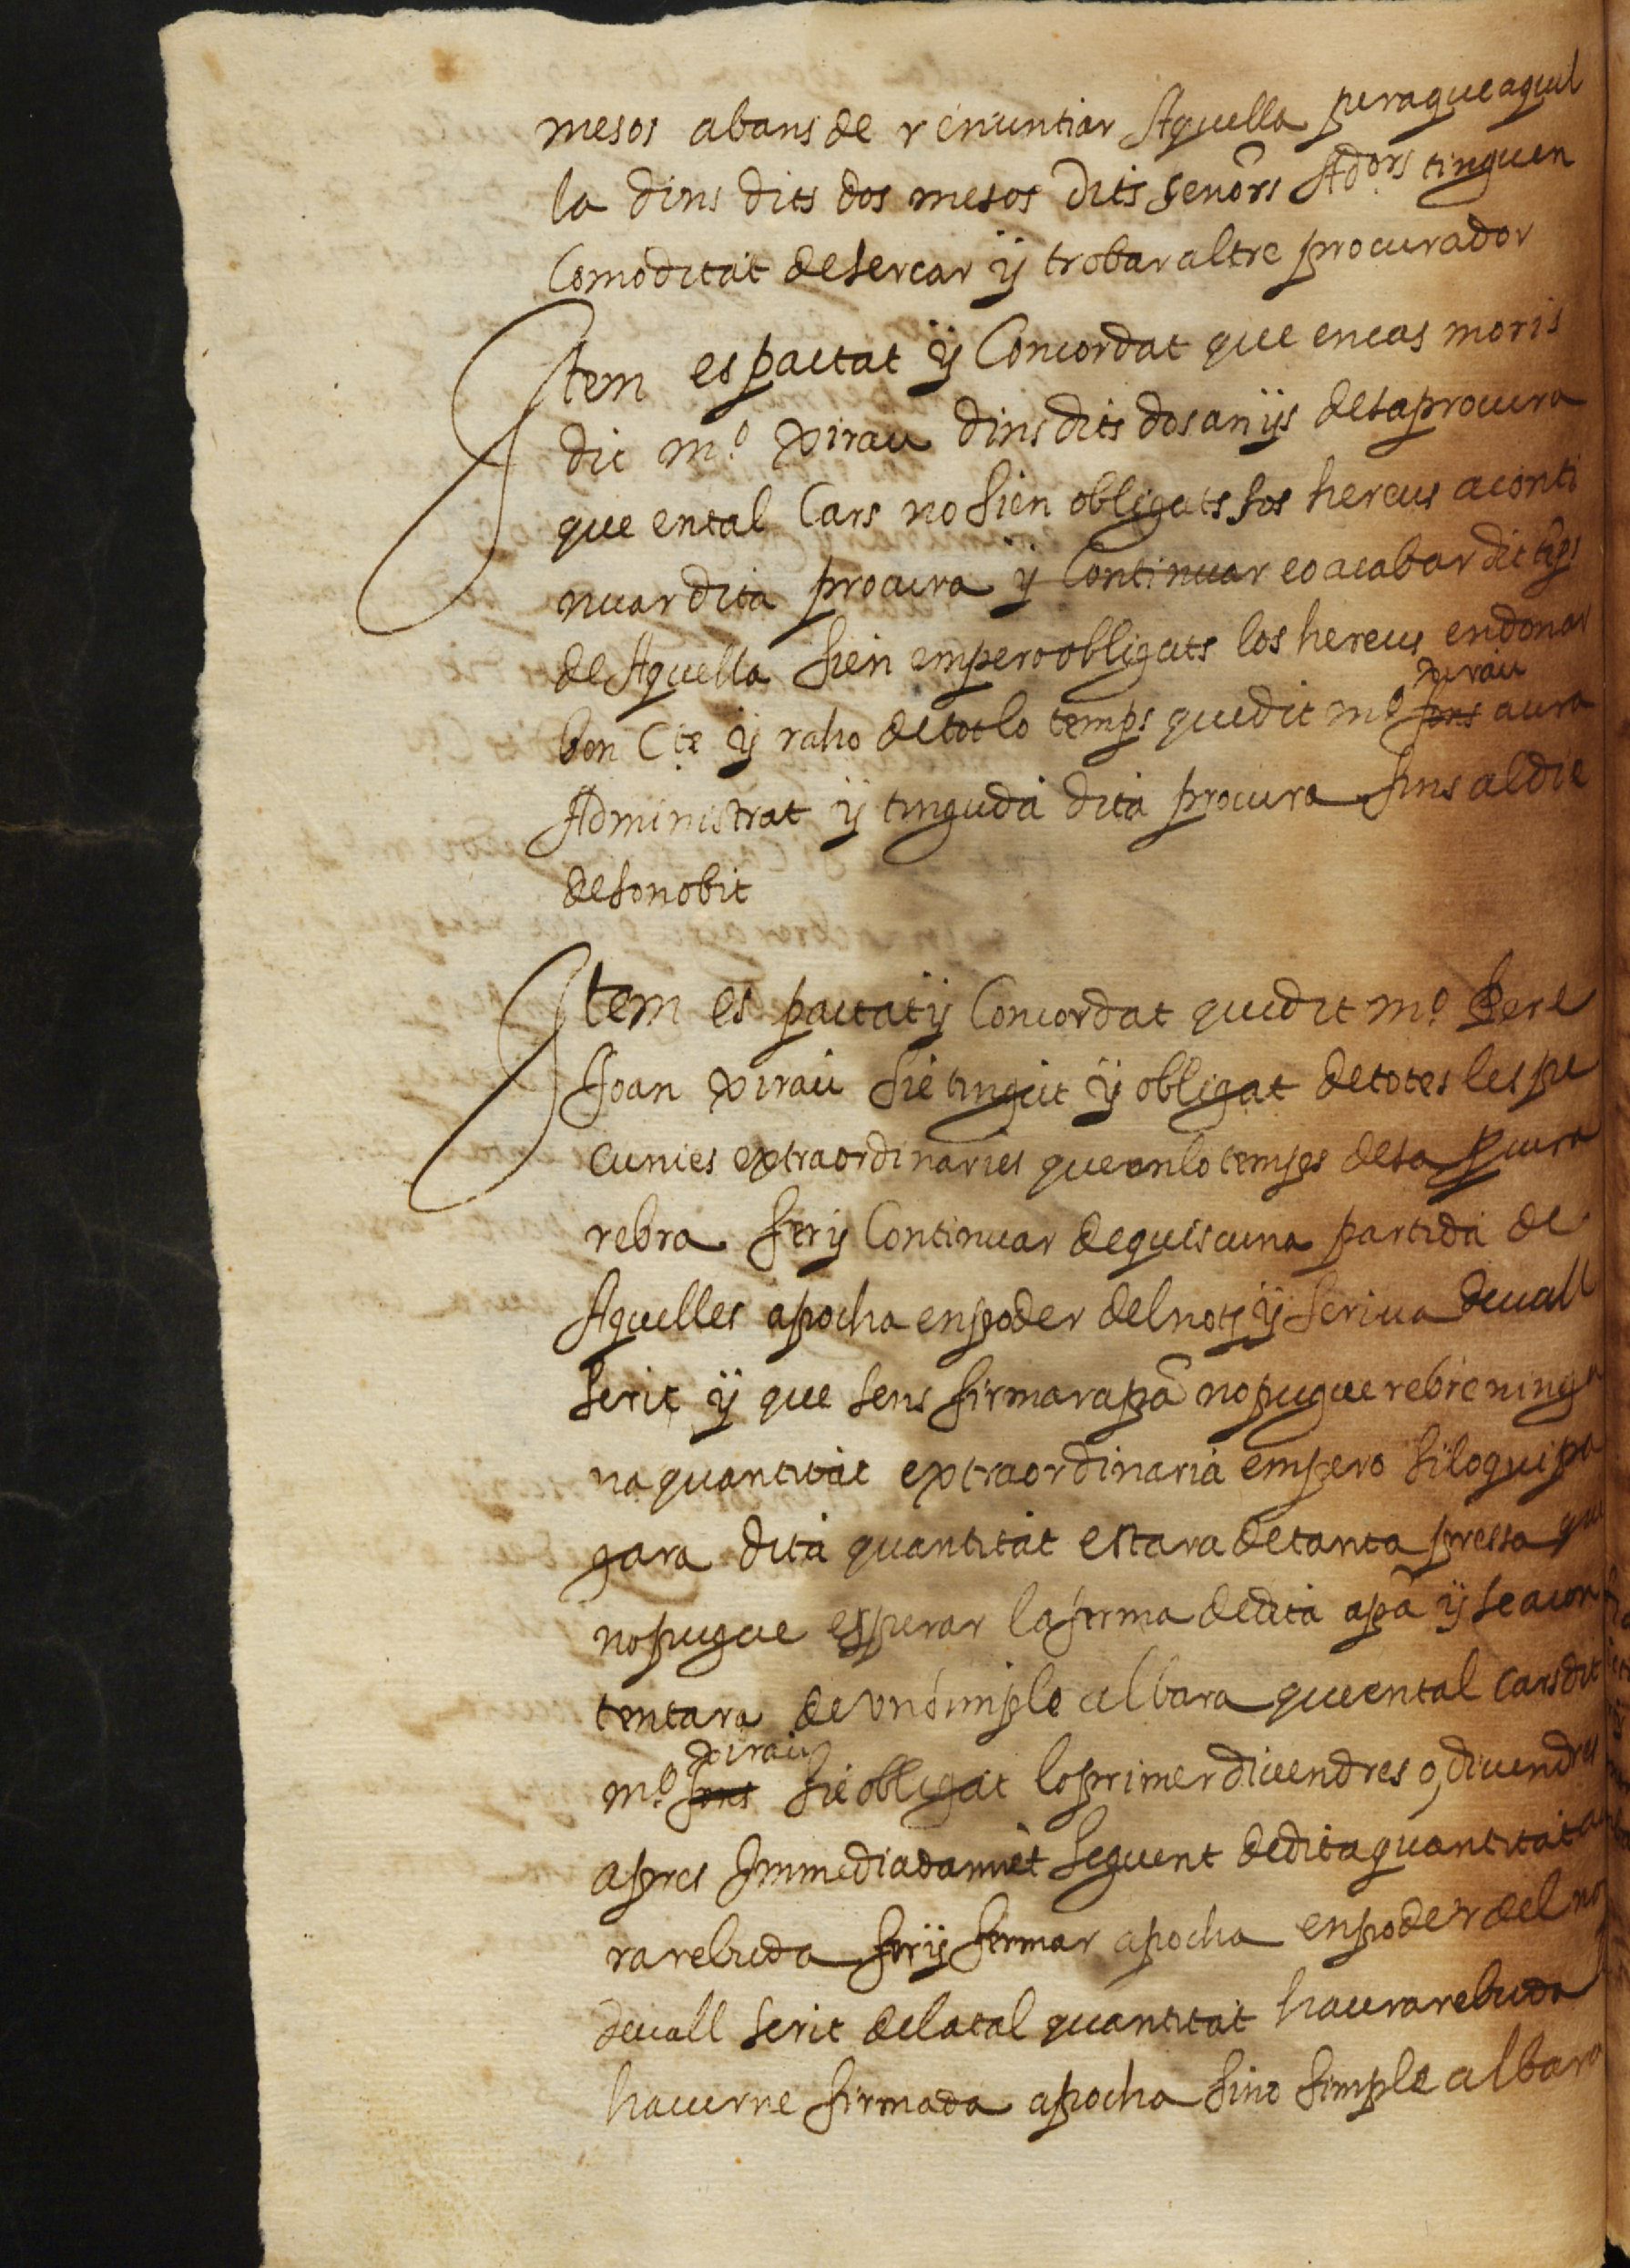 mesos abans de renuntiar Aquella peraque aquel
la dins dits dos mesos dits señors Adors tinguen
Comoditat desercar ÿ trobar altre procurador
Item es pactat ÿ Concordat que encas moris
dit mo. Xirau dins dits dos anÿs desaprocura
que ental Cars no sien obligats sos hereus aconti
nuar dita procura ÿ Continuar eo acabar dit temps
de Aquella sien empero obligats los hereus endonar
bon Cte ÿ raho detot lo temps quedit mo. fons Xirau aura
Administrat ÿ tinguda dita procura fins aldie
desonobit
Item es pactat ÿ Concordat quedit mo. Pere
Joan Xirau sie tingut ÿ obligat detotes les pe
cunies extraordinaries queenlo temps desa procura
rebra ferÿ Continuar dequiscuna partida de
Aquelles apocha enpoder delnot ÿ scriua deuall
scrit ÿ que sens firmar apa nopugue rebre ningu
na quantitat extraordinaria empero silo qui pa
gara dita quantitat estara detanta pressa que
nopugue esperar laferma dedita apa ÿ se acon
tentara de vn simple albara queental cars dit
mo. fons Xirau sie obligat loprimer diuendres o, diuendres
apres Immediadament seguent dedita quantitat au
ra rebuda ferÿ fermar apocha enpoder del not
deuall scrit delatal quantitat haura rebuda
hauerne firmada apocha sino simple albara